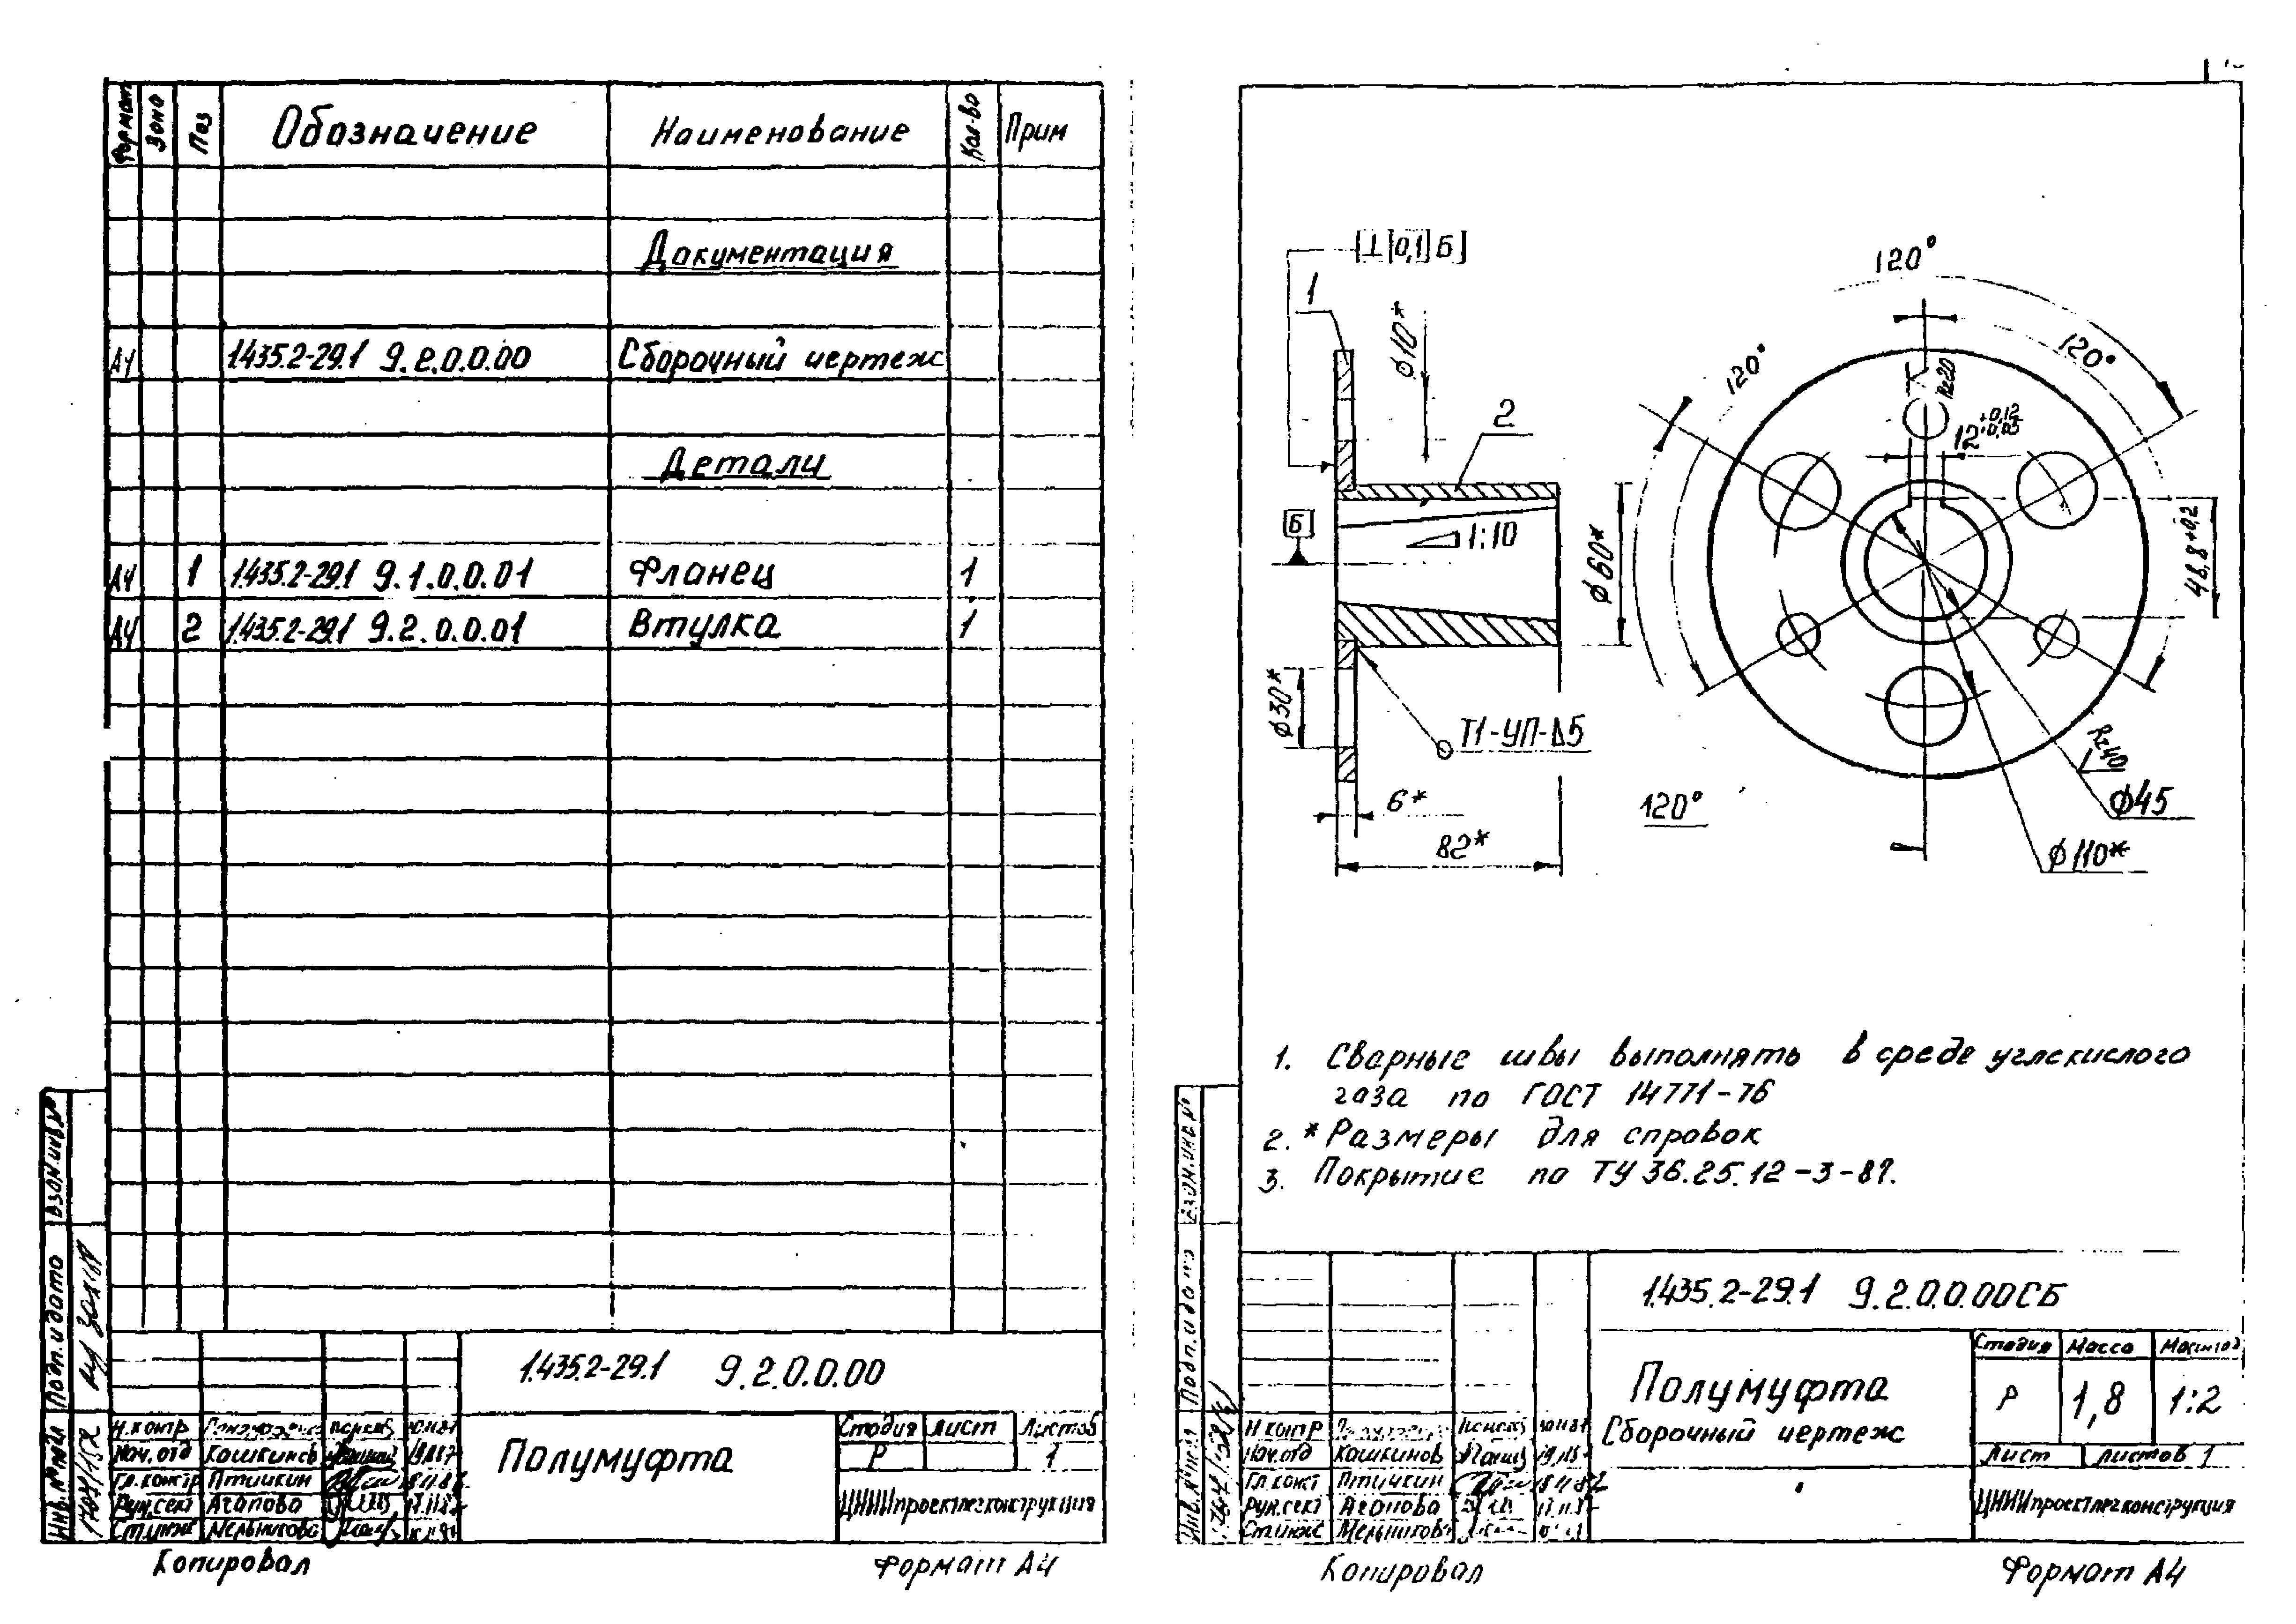 Формат Зона Поз Обозначение Наименование Кол-во Прим
Документация
А4 1.435.2-29.1 9.2.0.0.00 Сборочный чертеж
Детали
А4 1 1.435.2-29.1 9.1.0.0.01 Фланец 1
А4 2 1.435.2-29.1 9.2.0.0.01 Втулка 1
Взам.инв.№
Подп. и дата
Инв.№ подл
1.435.2-29.1 9.2.0.0.00
Н.контр
Нач.отд Кашкинов
Гл.констр Птичкин
Рук.сект Агапова
Ст.инж Мельникова
Полумуфта
Стадия Лист Листов
Р 1
ЦНИИпроектлегконструкция
Копировал
Формат А4
⊥ 0,1 Б
1
ϕ110*
2
Б
1:10
ϕ60*
ϕ30*
Т1-УП-Δ5
6*
82*
120°
120°
120°
Rz20
12 +0,12 +0,05
48,8+0,2
Rz40
ϕ45
ϕ110*
120°
1. Сварные швы выполнять в среде углекислого
газа по ГОСТ 14771-76
2. * Размеры для справок
3. Покрытие по ТУ 36.25.12-3-87.
Взам.инв.№
Подп. и дата
Инв.№ подл
1.435.2-29.1 9.2.0.0.00СБ
Н.контр
Нач.отд Кашкинов
Гл.конст Птичкин
Рук.сект Агапова
Ст.инж Мельникова
Полумуфта
Сборочный чертеж
Стадия Масса Масштаб
Р 1,8 1:2
Лист Листов 1
ЦНИИпроектлегконструкция
Копировал
Формат А4